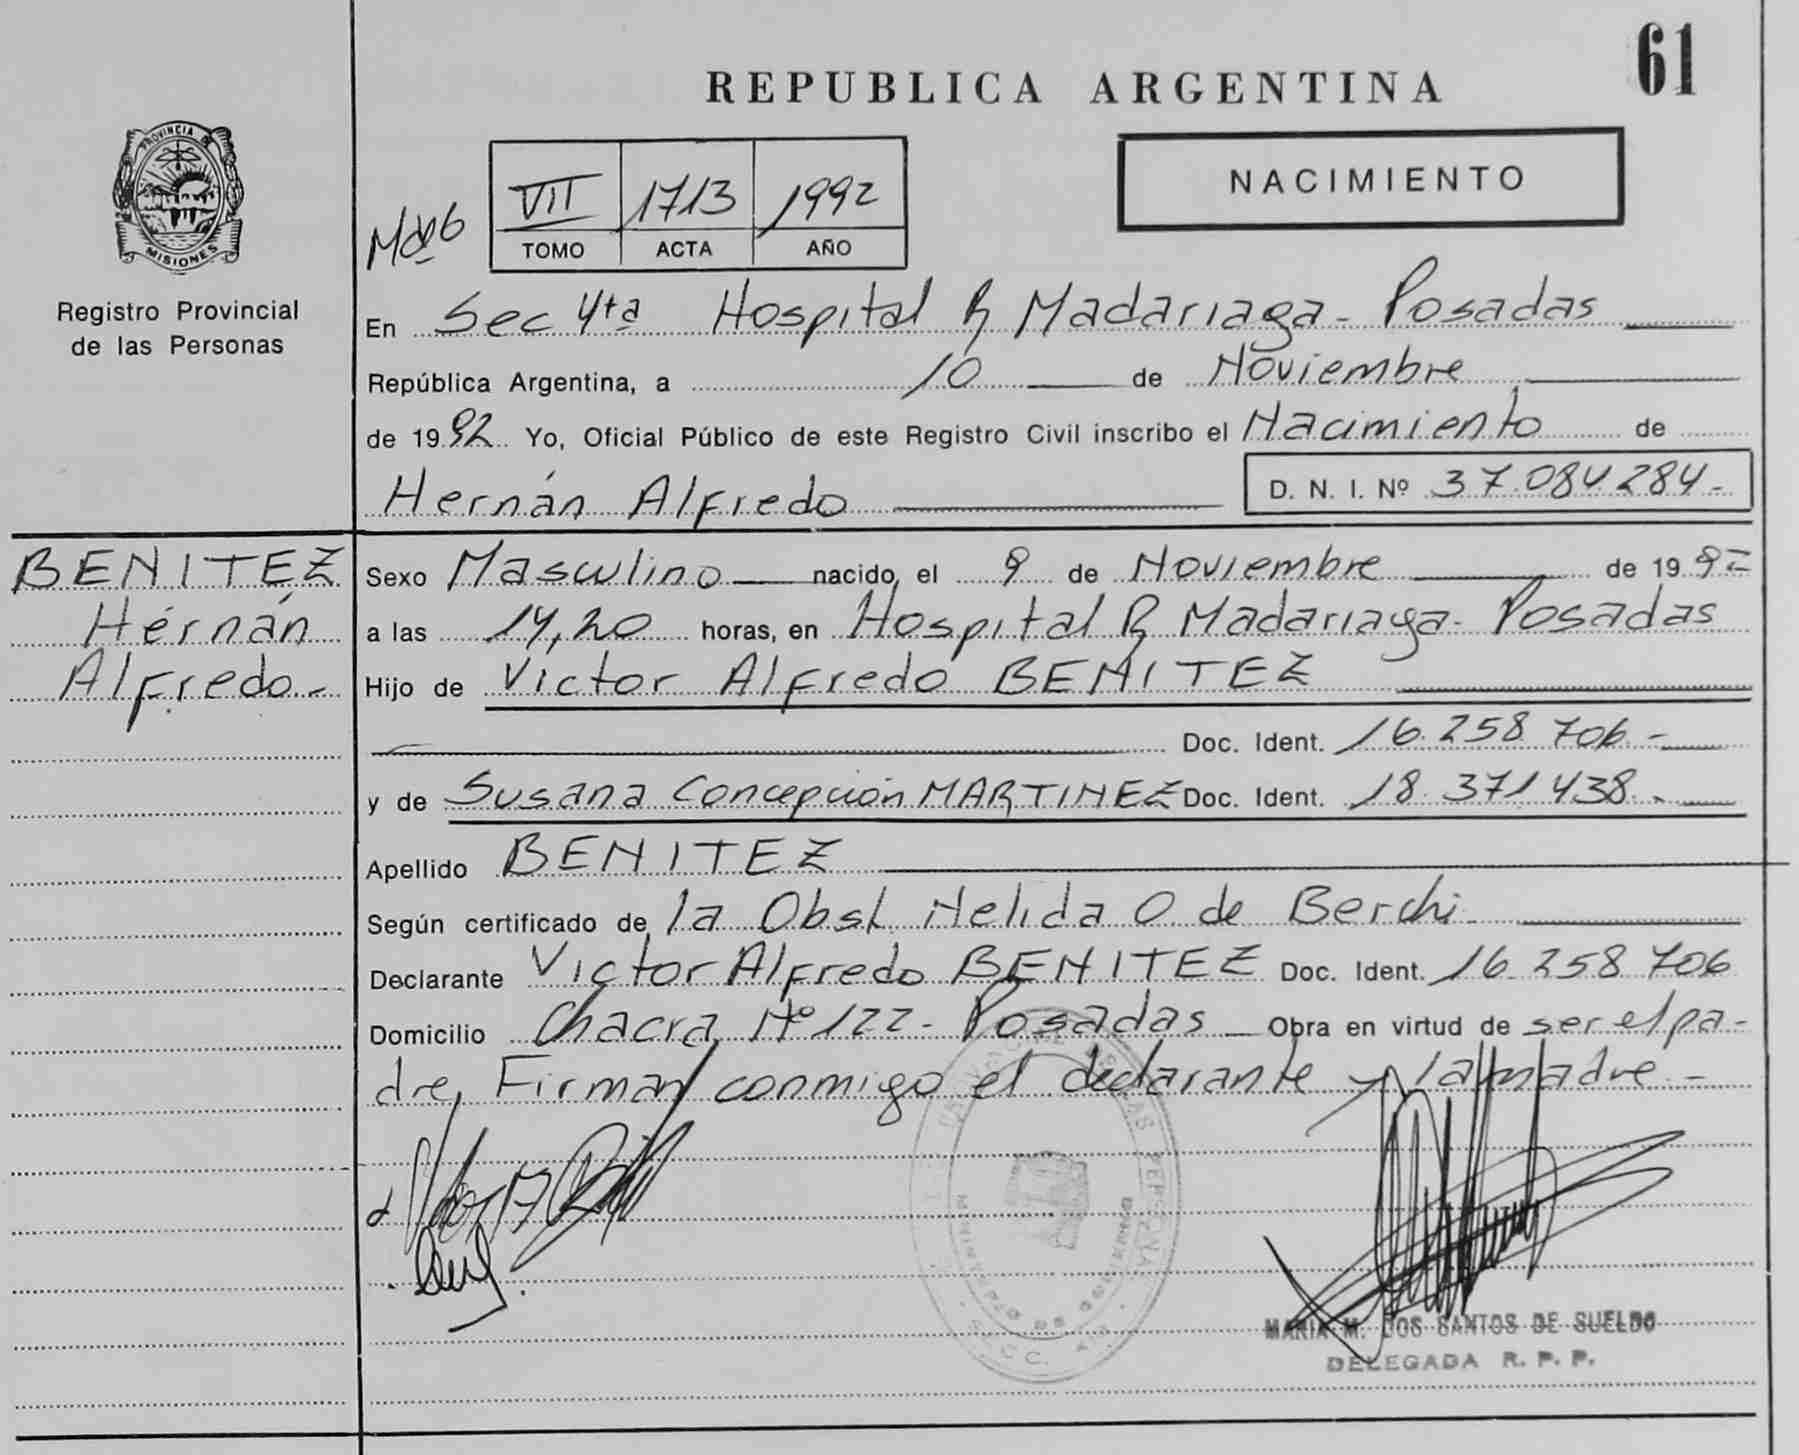 61
REPUBLICA ARGENTINA
NACIMIENTO
VII 1713 1992
TOMO ACTA AÑO
PROVINCIA DE
MISIONES
Registro Provincial
de las Personas
En Sec 4ta Hospital R Madariaga - Posadas
República Argentina, a 10 de Noviembre
de 1992 Yo, Oficial Público de este Registro Civil inscribo el Nacimiento de
Hernán Alfredo D. N. I. Nº 37.084.284-
BENITEZ
Hernán
Alfredo.-
Sexo Masculino nacido, el 9 de Noviembre de 1992
a las 14,20 horas, en Hospital R Madariaga - Posadas
Hijo de Victor Alfredo BENITEZ
Doc. Ident. 16.258.706.-
y de Susana Concepción MARTINEZ Doc. Ident. 18.371.438.-
Apellido BENITEZ
Según certificado de la Obst. Nelida O de Berchi
Declarante Victor Alfredo BENITEZ Doc. Ident. 16.258.706
Domicilio Chacra Nº 122 - Posadas Obra en virtud de ser el pa-
dre, Firman conmigo el declarante y la madre.-
MARIA M. DOS SANTOS DE SUELDO
DELEGADA R. P. P.